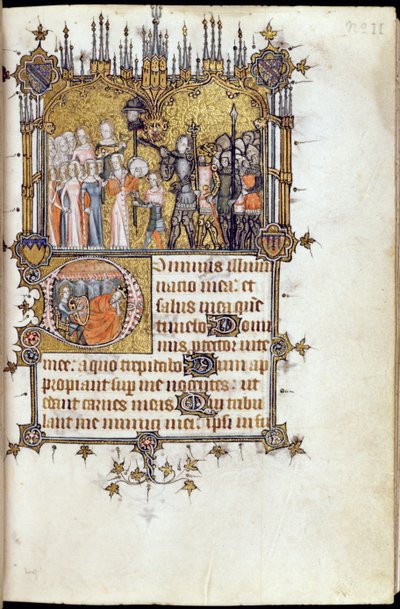 No 11
Dominus illumi
natio mea: et
salus mea que
timebo Domi
nus ptector vite
mee: a quo trepidabo Dum ap
propiant sup me nocetes: ut
edant carnes meas Qui tribu
lant me inimici mei: ipsi infi